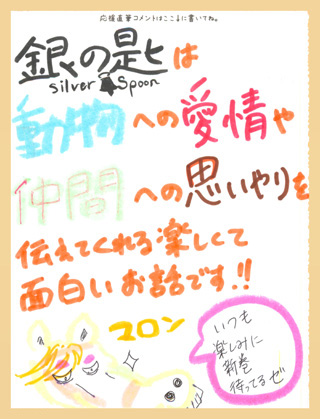 応援直筆コメントはここに書いてね。
銀の匙は
silver Spoon
動物への愛情や
仲間への思いやりを
伝えてくれる楽しくて
面白いお話です!!
マロン
いつも
楽しみに
新巻
待ってるぜ